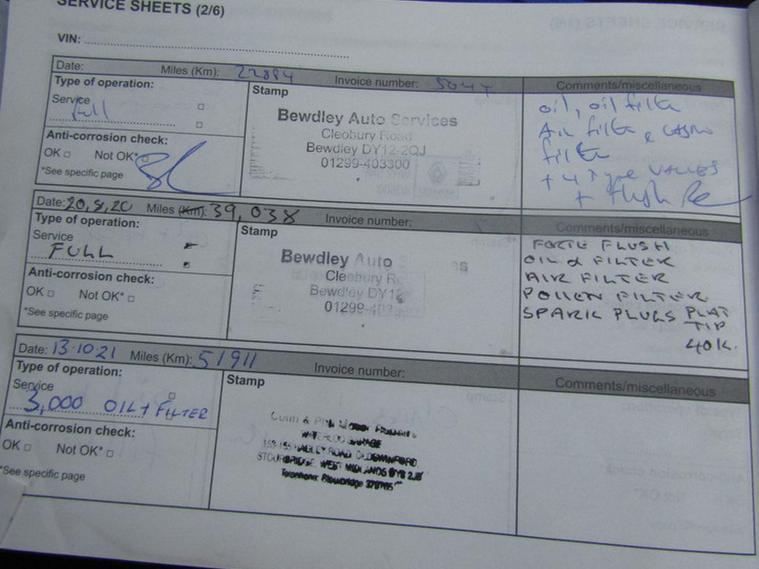 SERVICE SHEETS (2/6)
VIN:
Date: Miles (Km): 22894 Invoice number:
Type of operation:
Service
Full
Anti-corrosion check:
OK Not OK*
*See specific page
Stamp
Bewdley Auto Services
Cleobury Road
Bewdley DY12-2QJ
01299-403300
Comments/miscellaneous
oil, oil filter
Air filter &
filter
+ 4 Tyre VALVES
+ flush
Date: 20,8,20 Miles (Km): 39,038 Invoice number:
Type of operation:
Service
FULL
Anti-corrosion check:
OK Not OK*
*See specific page
Stamp
Bewdley Auto
Cleobury R
Bewdley DY12
01299-403
Comments/miscellaneous
FORTE FLUSH
OIL & FILTER
AIR FILTER
POLLEN FILTER
SPARK PLUGS PLAT
TIP
40K.
Date: 13-10-21 Miles (Km): 51911 Invoice number:
Type of operation:
Service
3,000 OIL + FILTER
Anti-corrosion check:
OK Not OK*
*See specific page
Stamp
ROAD
STOURBRIDGE, WEST MIDLANDS DY8 2JB
Telephone: Stourbridge
Comments/miscellaneous